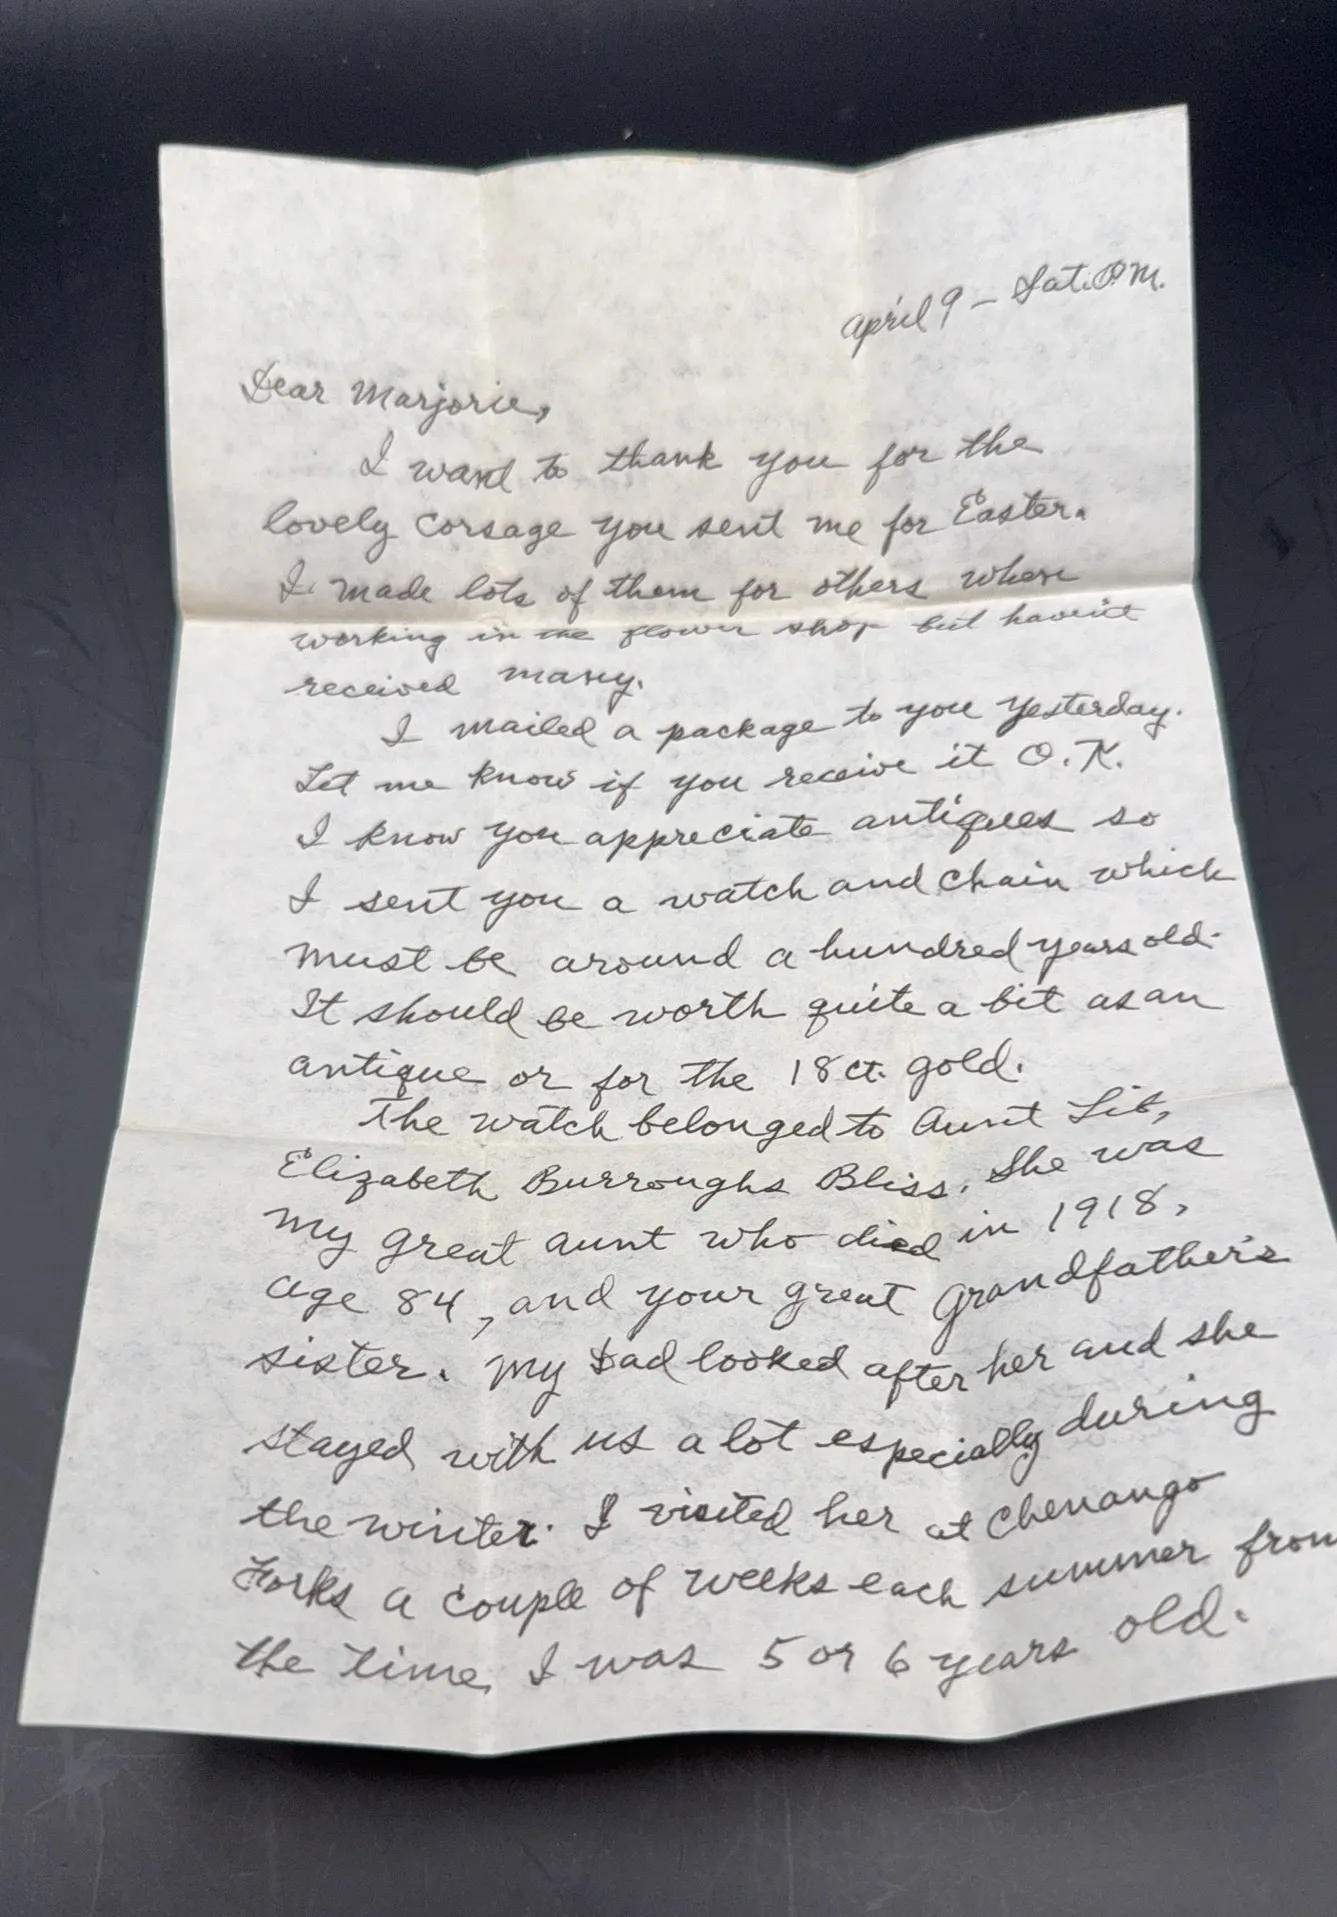 April 9 – Sat. P.M.
Dear Marjorie,
I want to thank you for the
lovely corsage you sent me for Easter.
I made lots of them for others when
working in the flower shop but haven't
received many.
I mailed a package to you yesterday.
Let me know if you receive it O.K.
I know you appreciate antiques so
I sent you a watch and chain which
must be around a hundred years old.
It should be worth quite a bit as an
antique or for the 18 ct. gold.
The watch belonged to Aunt Lib,
Elizabeth Burroughs Bliss. She was
my great aunt who died in 1918,
age 84, and your great Grandfather's
sister. My Dad looked after her and she
stayed with us a lot especially during
the winter. I visited her at Chenango
Forks a couple of weeks each summer from
the time I was 5 or 6 years old.